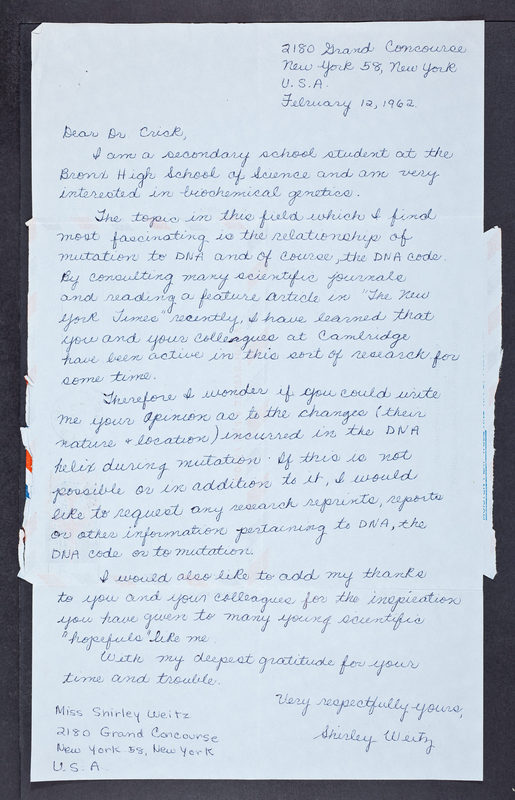 2180 Grand Concourse
New York 58, New York
U.S.A.
February 12, 1962
Dear Dr Crick,
I am a secondary school student at the
Bronx High School of Science and am very
interested in biochemical genetics.
The topic in this field which I find
most fascinating is the relationship of
mutation to DNA and of course, the DNA code.
By consulting many scientific journals
and reading a feature article in "The New
York Times" recently, I have learned that
you and your colleagues at Cambridge
have been active in this sort of research for
some time.
Therefore I wonder if you could write
me your opinion as to the changes (their
nature + location) incurred in the DNA
helix during mutation. If this is not
possible or in addition to it, I would
like to request any research reprints, reports
or other information pertaining to DNA, the
DNA code or to mutation.
I would also like to add my thanks
to you and your colleagues for the inspiration
you have given to many young scientific
"hopefuls" like me.
With my deepest gratitude for your
time and trouble.
Very respectfully yours,
Shirley Weitz
Miss Shirley Weitz
2180 Grand Concourse
New York 58, New York
U.S.A.